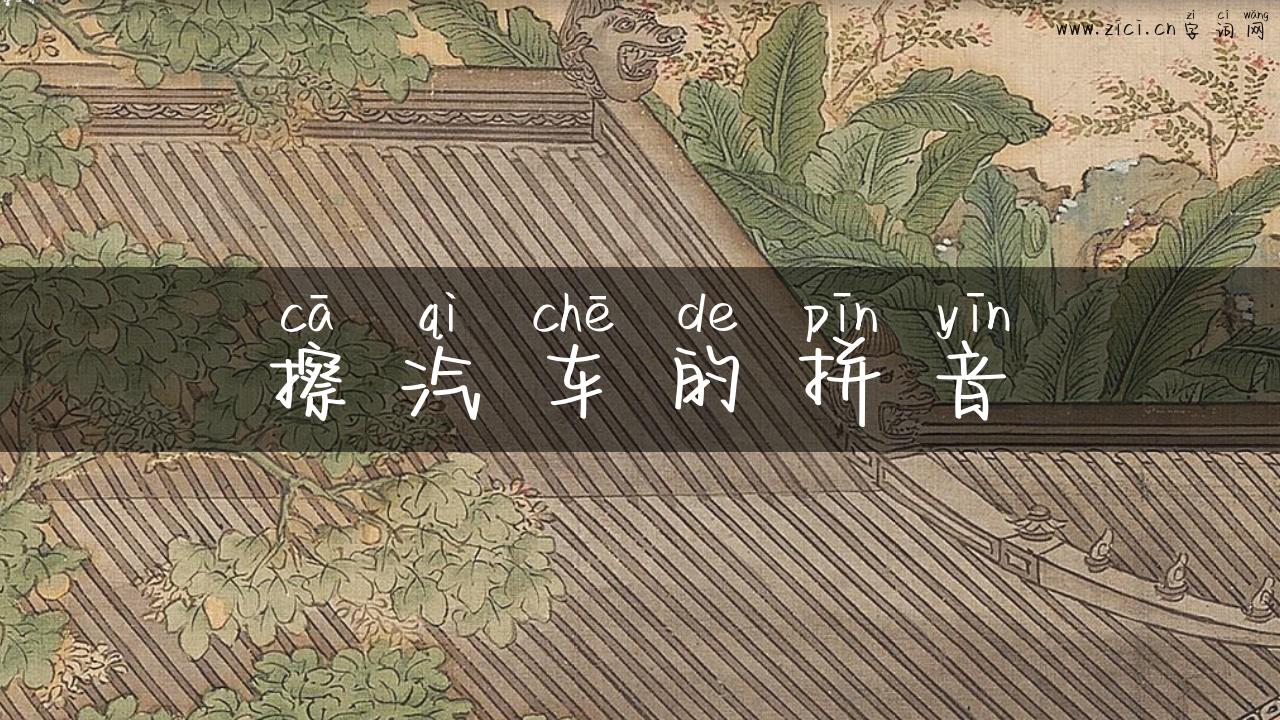 zì cí wǎng
www.zici.cn 字词网
cā qì chē de pīn yīn
擦汽车的拼音